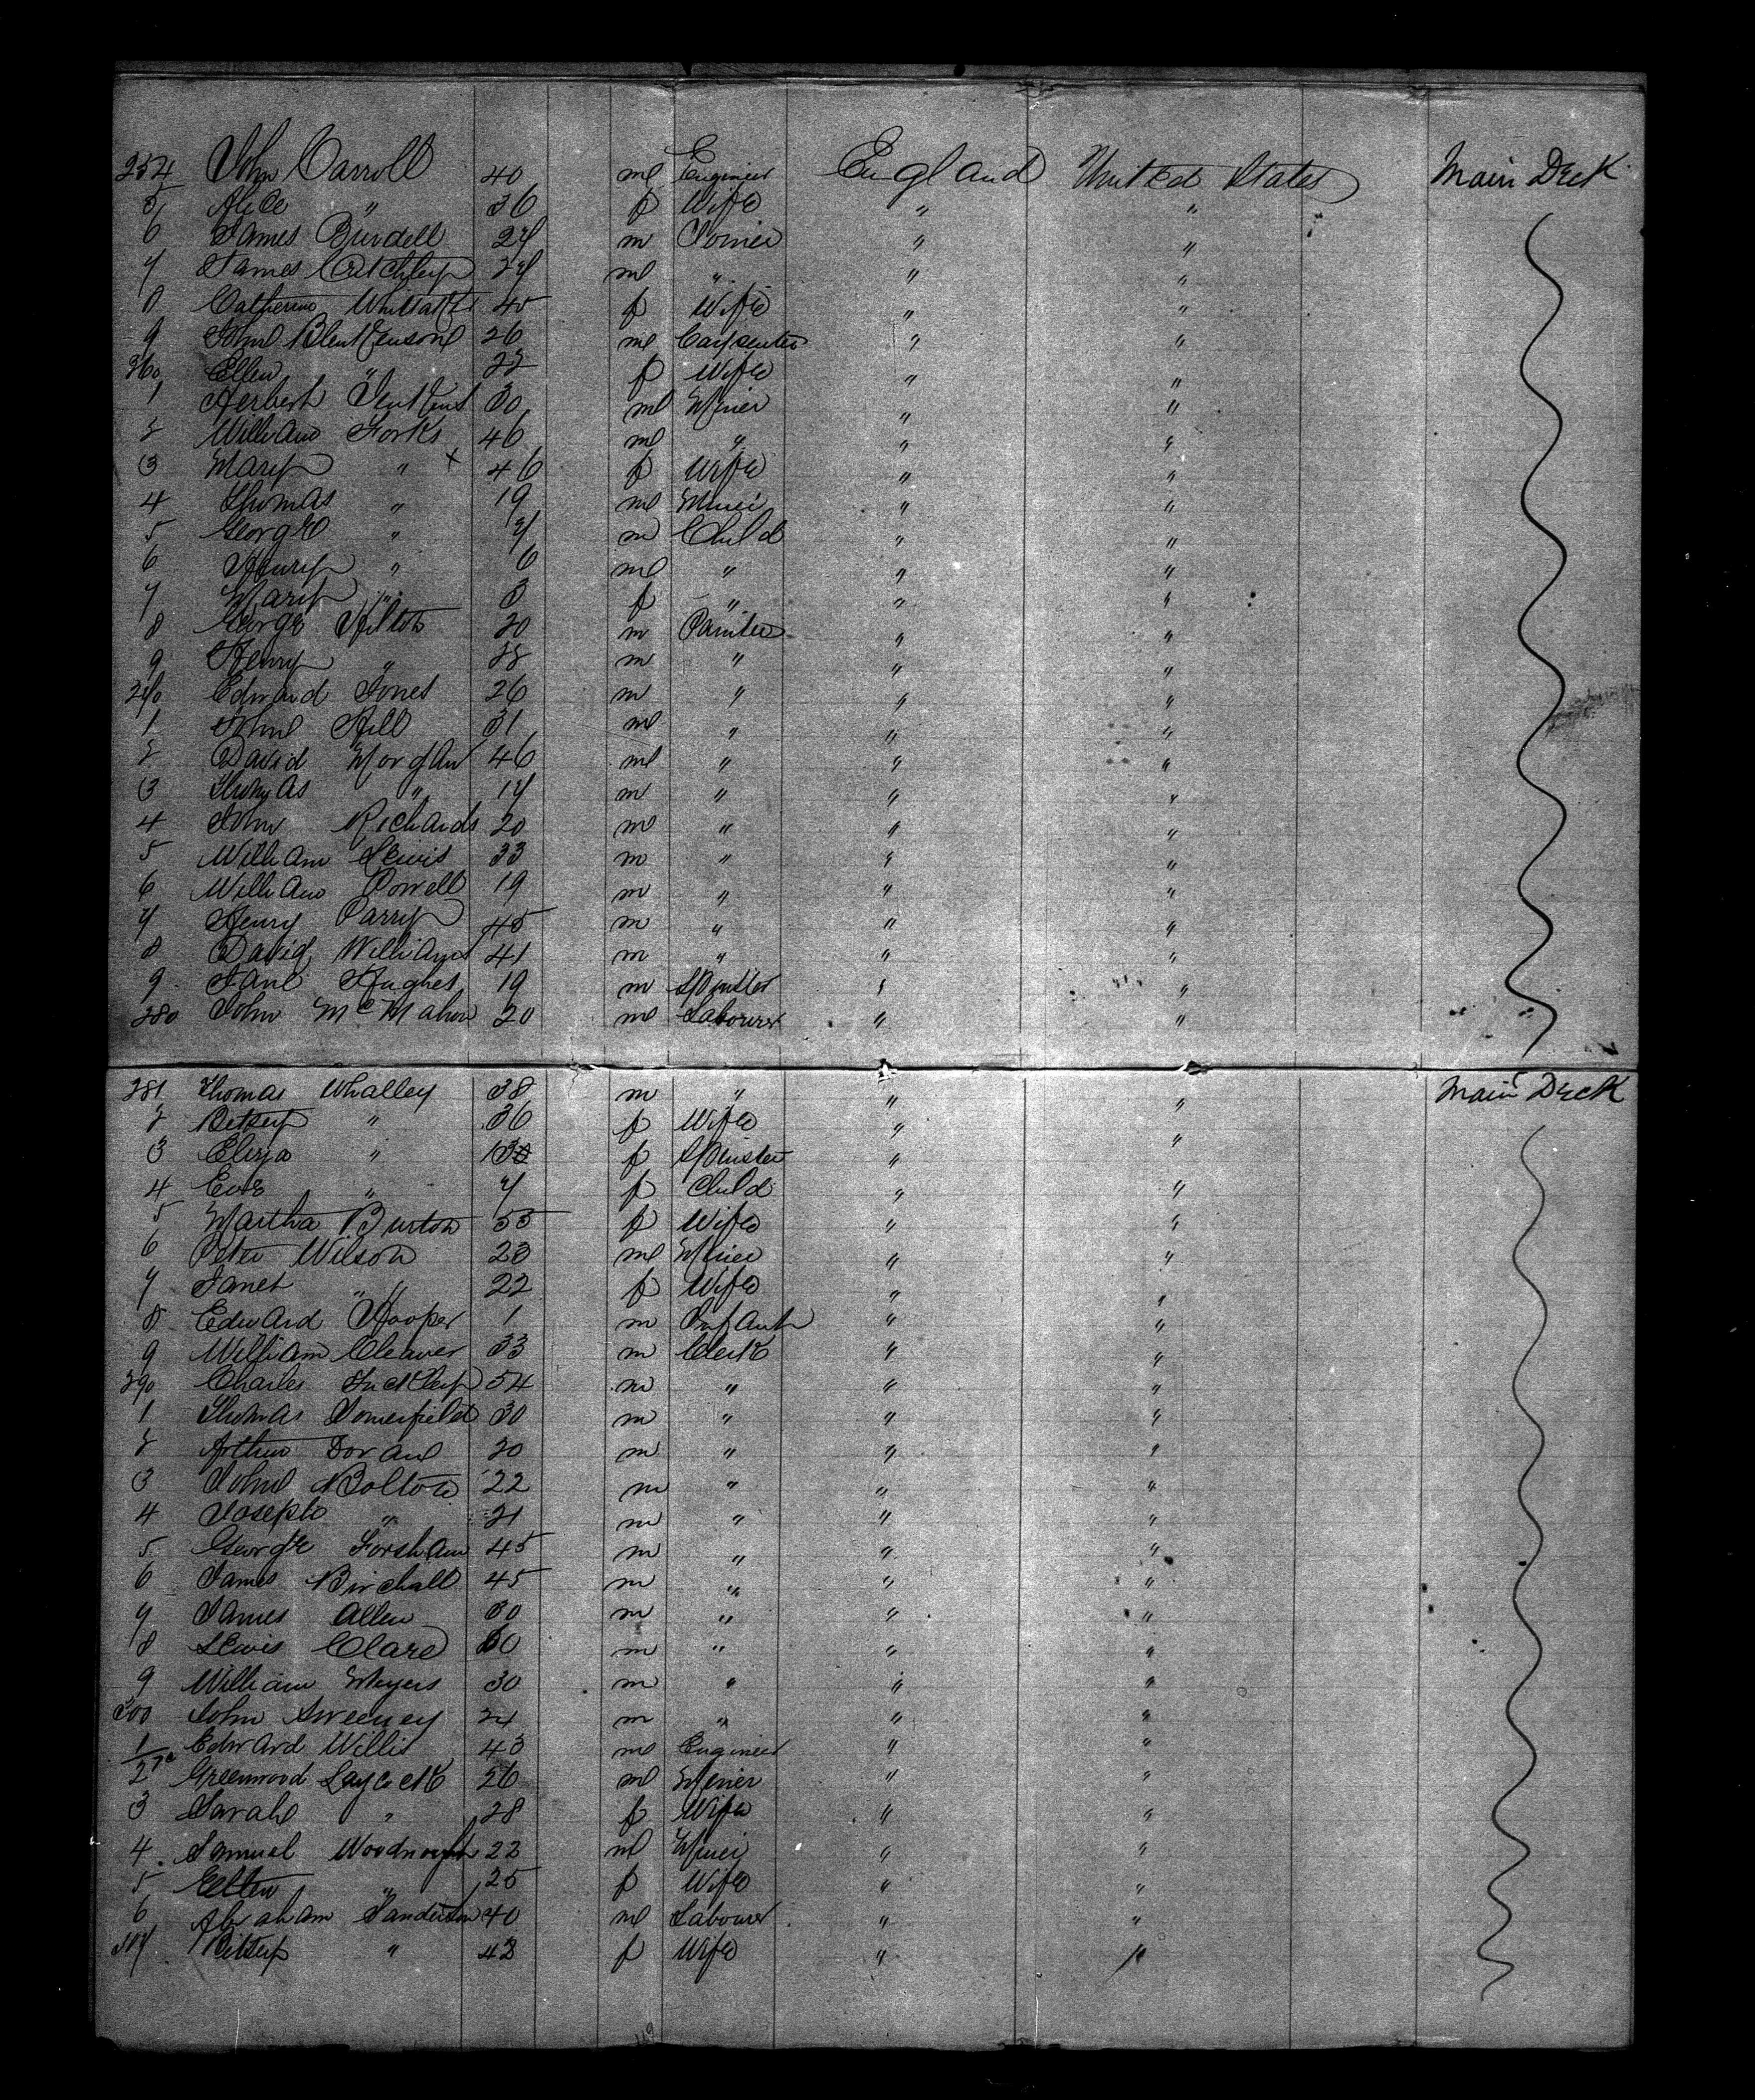 254 John Carroll 40 m Engineer England United States Main Deck
5 Alice " 36 f Wife " "
6 James Burdell 27 m Joiner " "
7 James Critchley 27 m " " "
8 Catherine 45 f Wife " "
9 John Blenkensone 26 m Carpenter " "
260 Ellen " 22 f Wife " "
1 Herbert Jenkins 30 m Miner " "
2 William Forks 46 m " " "
3 Mary " x 46 f Wife " "
4 Thomas " 19 m Miner " "
5 George " 7 m Child " "
6 Henry " 6 m " " "
7 Mary " 3 f " " "
8 George Hilton 20 m Painter " "
9 Henry " 22 m " " "
270 Edward Jones 26 m " " "
1 John Hill 31 m " " "
2 David Morgan 46 m " " "
3 Thomas " 17 m " " "
4 John Richards 20 m " " "
5 William Lewis 33 m " " "
6 William Powell 19 m " " "
7 Henry Parry 45 m " " "
8 David Williams 41 m " " "
9 Jane Hughes 19 m Spinster " "
280 John McMahon 20 m Labourer " "
281 Thomas Whalley 38 m " " " Main Deck
2 Betsey " 36 f Wife " "
3 Eliza " f Spinster " "
4 Eve " 7 f Child " "
5 Martha Burton 55 f Wife " "
6 Peter Wilson 23 m Miner " "
7 Janet " 22 f Wife " "
8 Edward Hooper 1 m Infant " "
9 William Cleaver 33 m Clerk " "
290 Charles Tuckley 54 m " " "
1 Thomas Somerfield 30 m " " "
2 Arthur Doran 20 m " " "
3 John Bolton 22 m " " "
4 Joseph " 21 m " " "
5 George Forsham 45 m " " "
6 James Birchall 45 m " " "
7 James Allen 30 m " " "
8 Lewis Clare 30 m " " "
9 William Meyers 30 m " " "
300 John Sweeney 24 m " " "
1 Edward Willis 43 m Engineer " "
2 Greenwood Laycock 26 m Miner " "
3 Sarah " 28 f Wife " "
4 Samuel Woodnough 22 m Miner " "
5 Ellen " 25 f Wife " "
6 Abraham Sanderson 40 m Labourer " "
307 Betsey " 42 f Wife " "